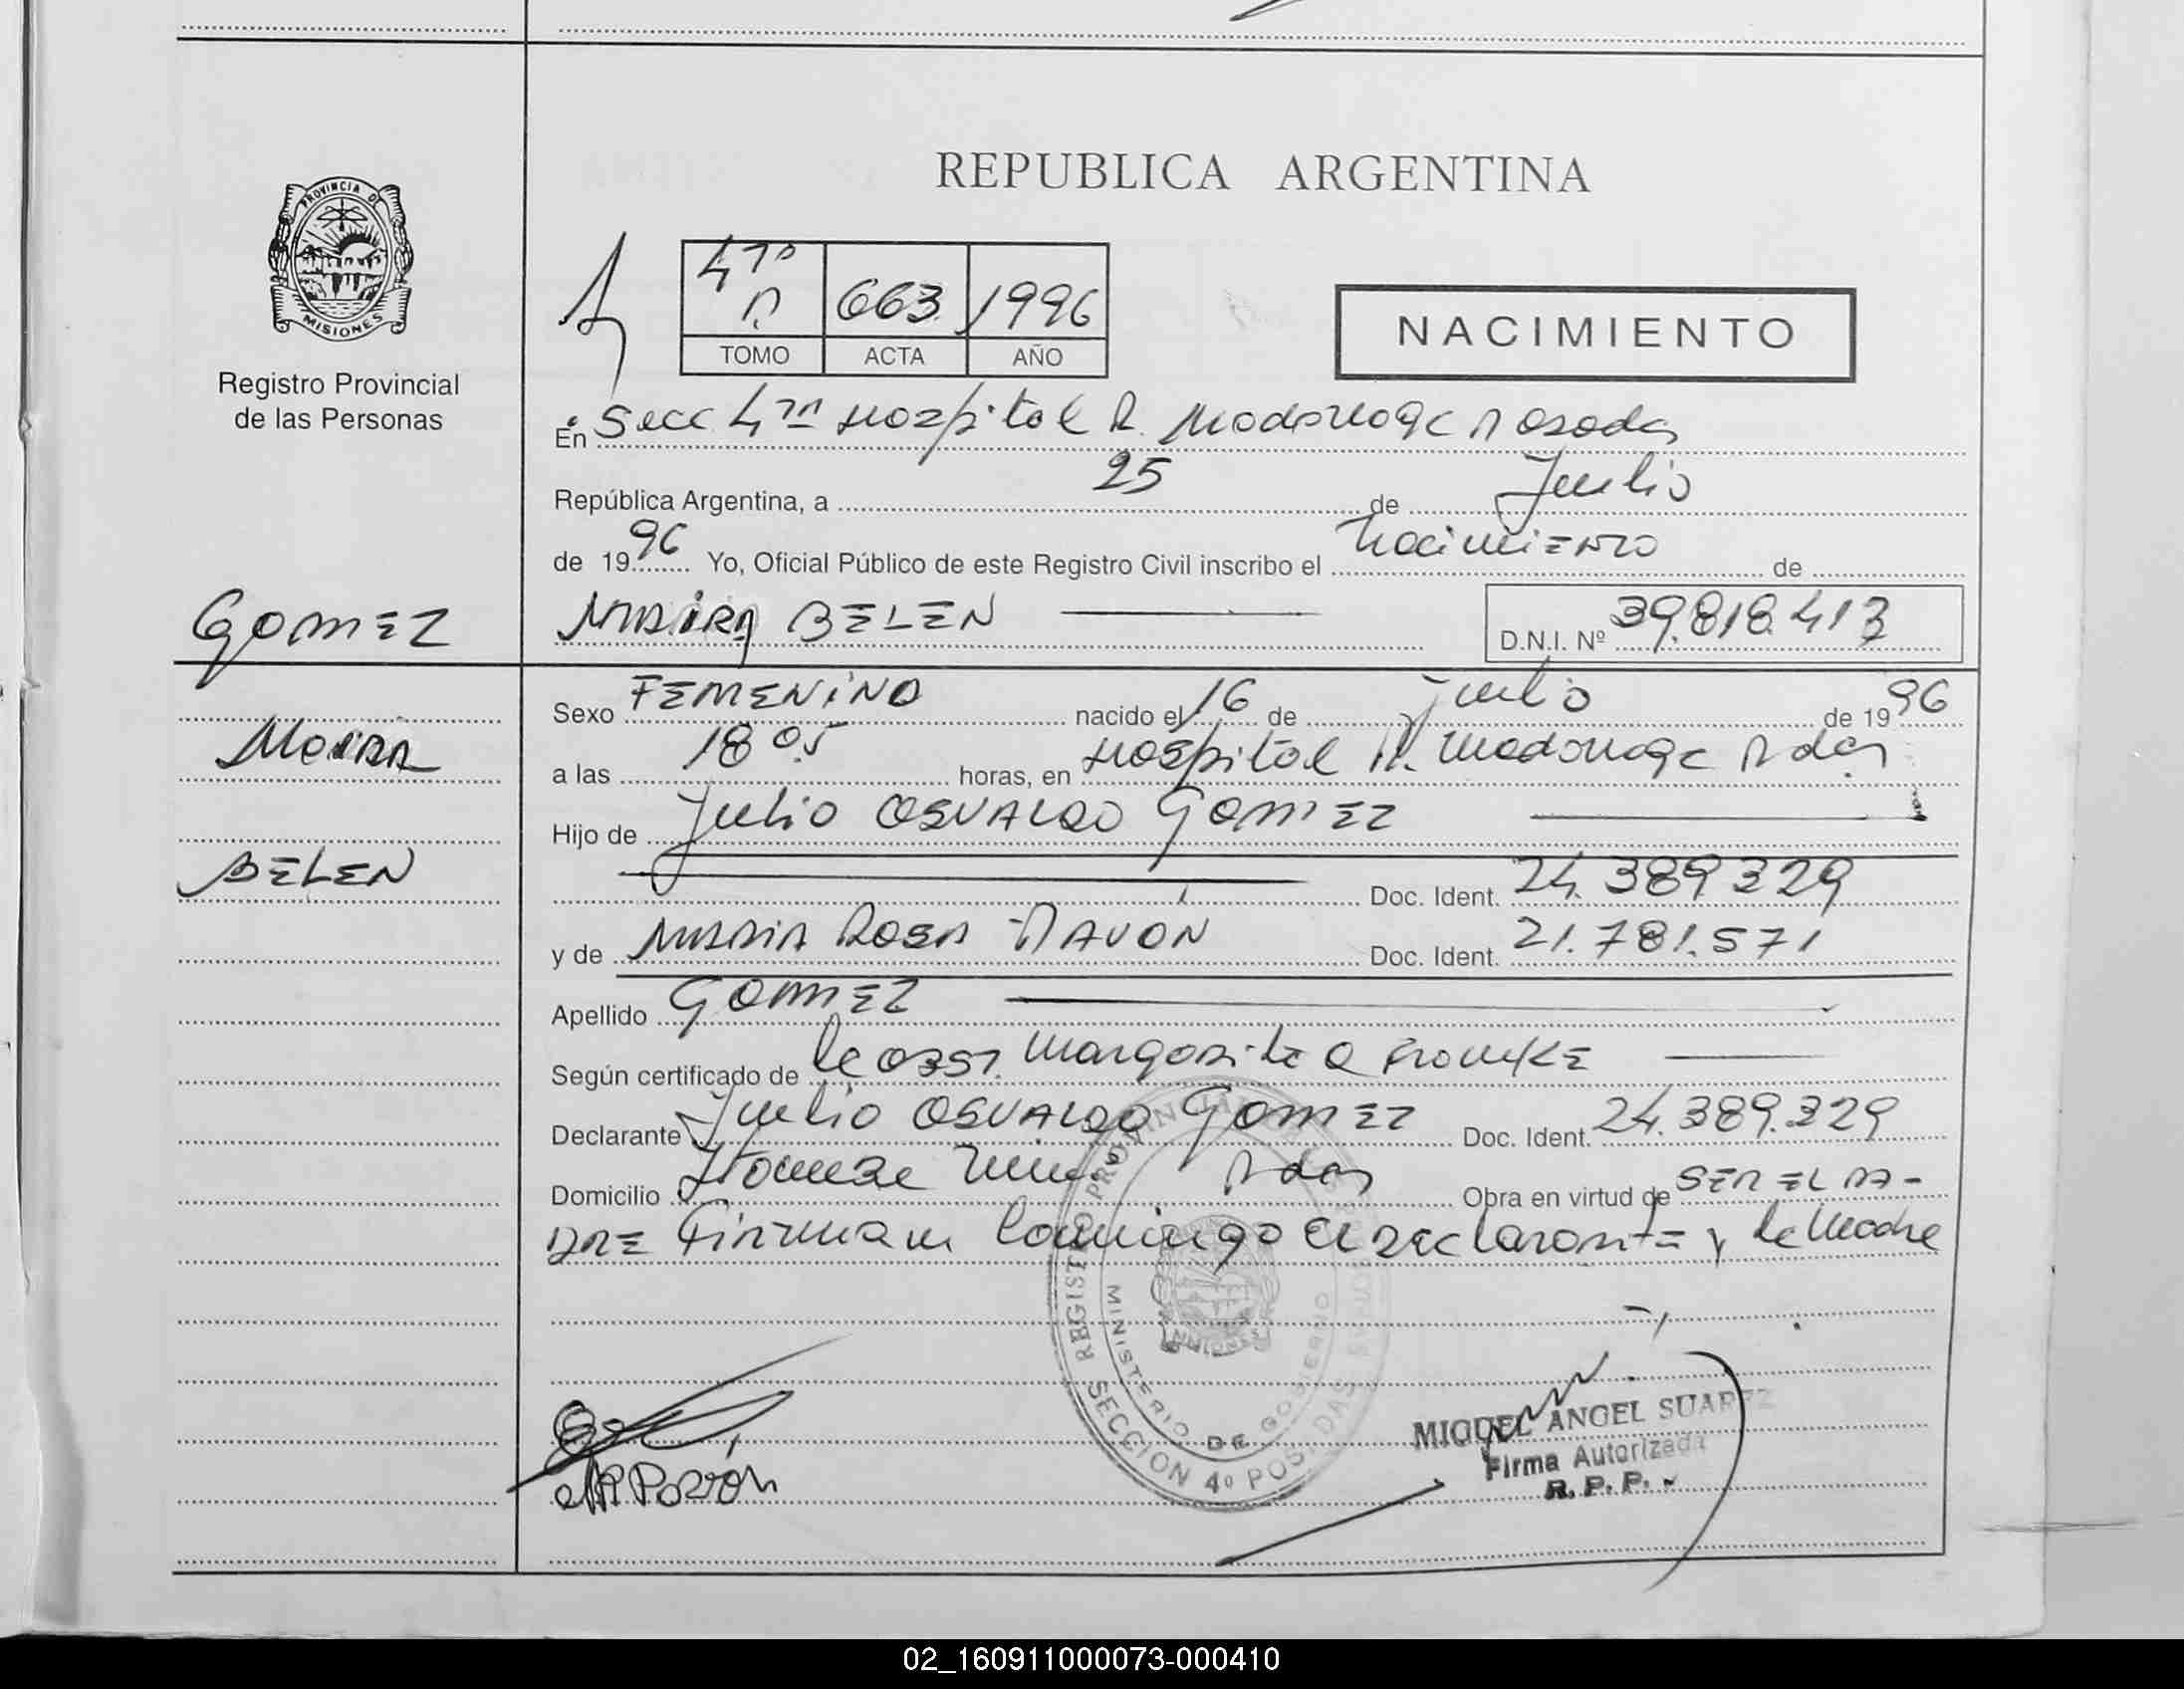 REPUBLICA ARGENTINA
PROVINCIA DE
MISIONES
Registro Provincial
de las Personas
663 1996
TOMO ACTA AÑO
NACIMIENTO
En Secc 4ta Hospital R. Madariaga Posadas
República Argentina, a 25 de Julio
de 1996 Yo, Oficial Público de este Registro Civil inscribo el Nacimiento de
GOMEZ
MAIRA BELEN
D.N.I. Nº 39.818.413
Sexo FEMENINO nacido el 16 de Julio de 1996
MAIRA
a las 18 05 horas, en Hospital R. Madariaga Pdas
Hijo de Julio OSVALDO GOMEZ
BELEN
Doc. Ident. 24.389.329
y de MARIA ROSA PAVON Doc. Ident. 21.781.571
Apellido GOMEZ
Según certificado de la Obst. Margarita
Declarante Julio OSVALDO GOMEZ Doc. Ident. 24.389.329
Domicilio Pdas Obra en virtud de SER EL PA-
DRE Firman Conmigo el DEClarante y la Madre
REGISTRO PROVINCIAL DE LAS PERSONAS
MINISTERIO DE GOBIERNO
MISIONES
SECCION 4º POSADAS
MIGUEL ANGEL SUAREZ
Firma Autorizada
R. P. P.
MR Pavón
02_160911000073-000410